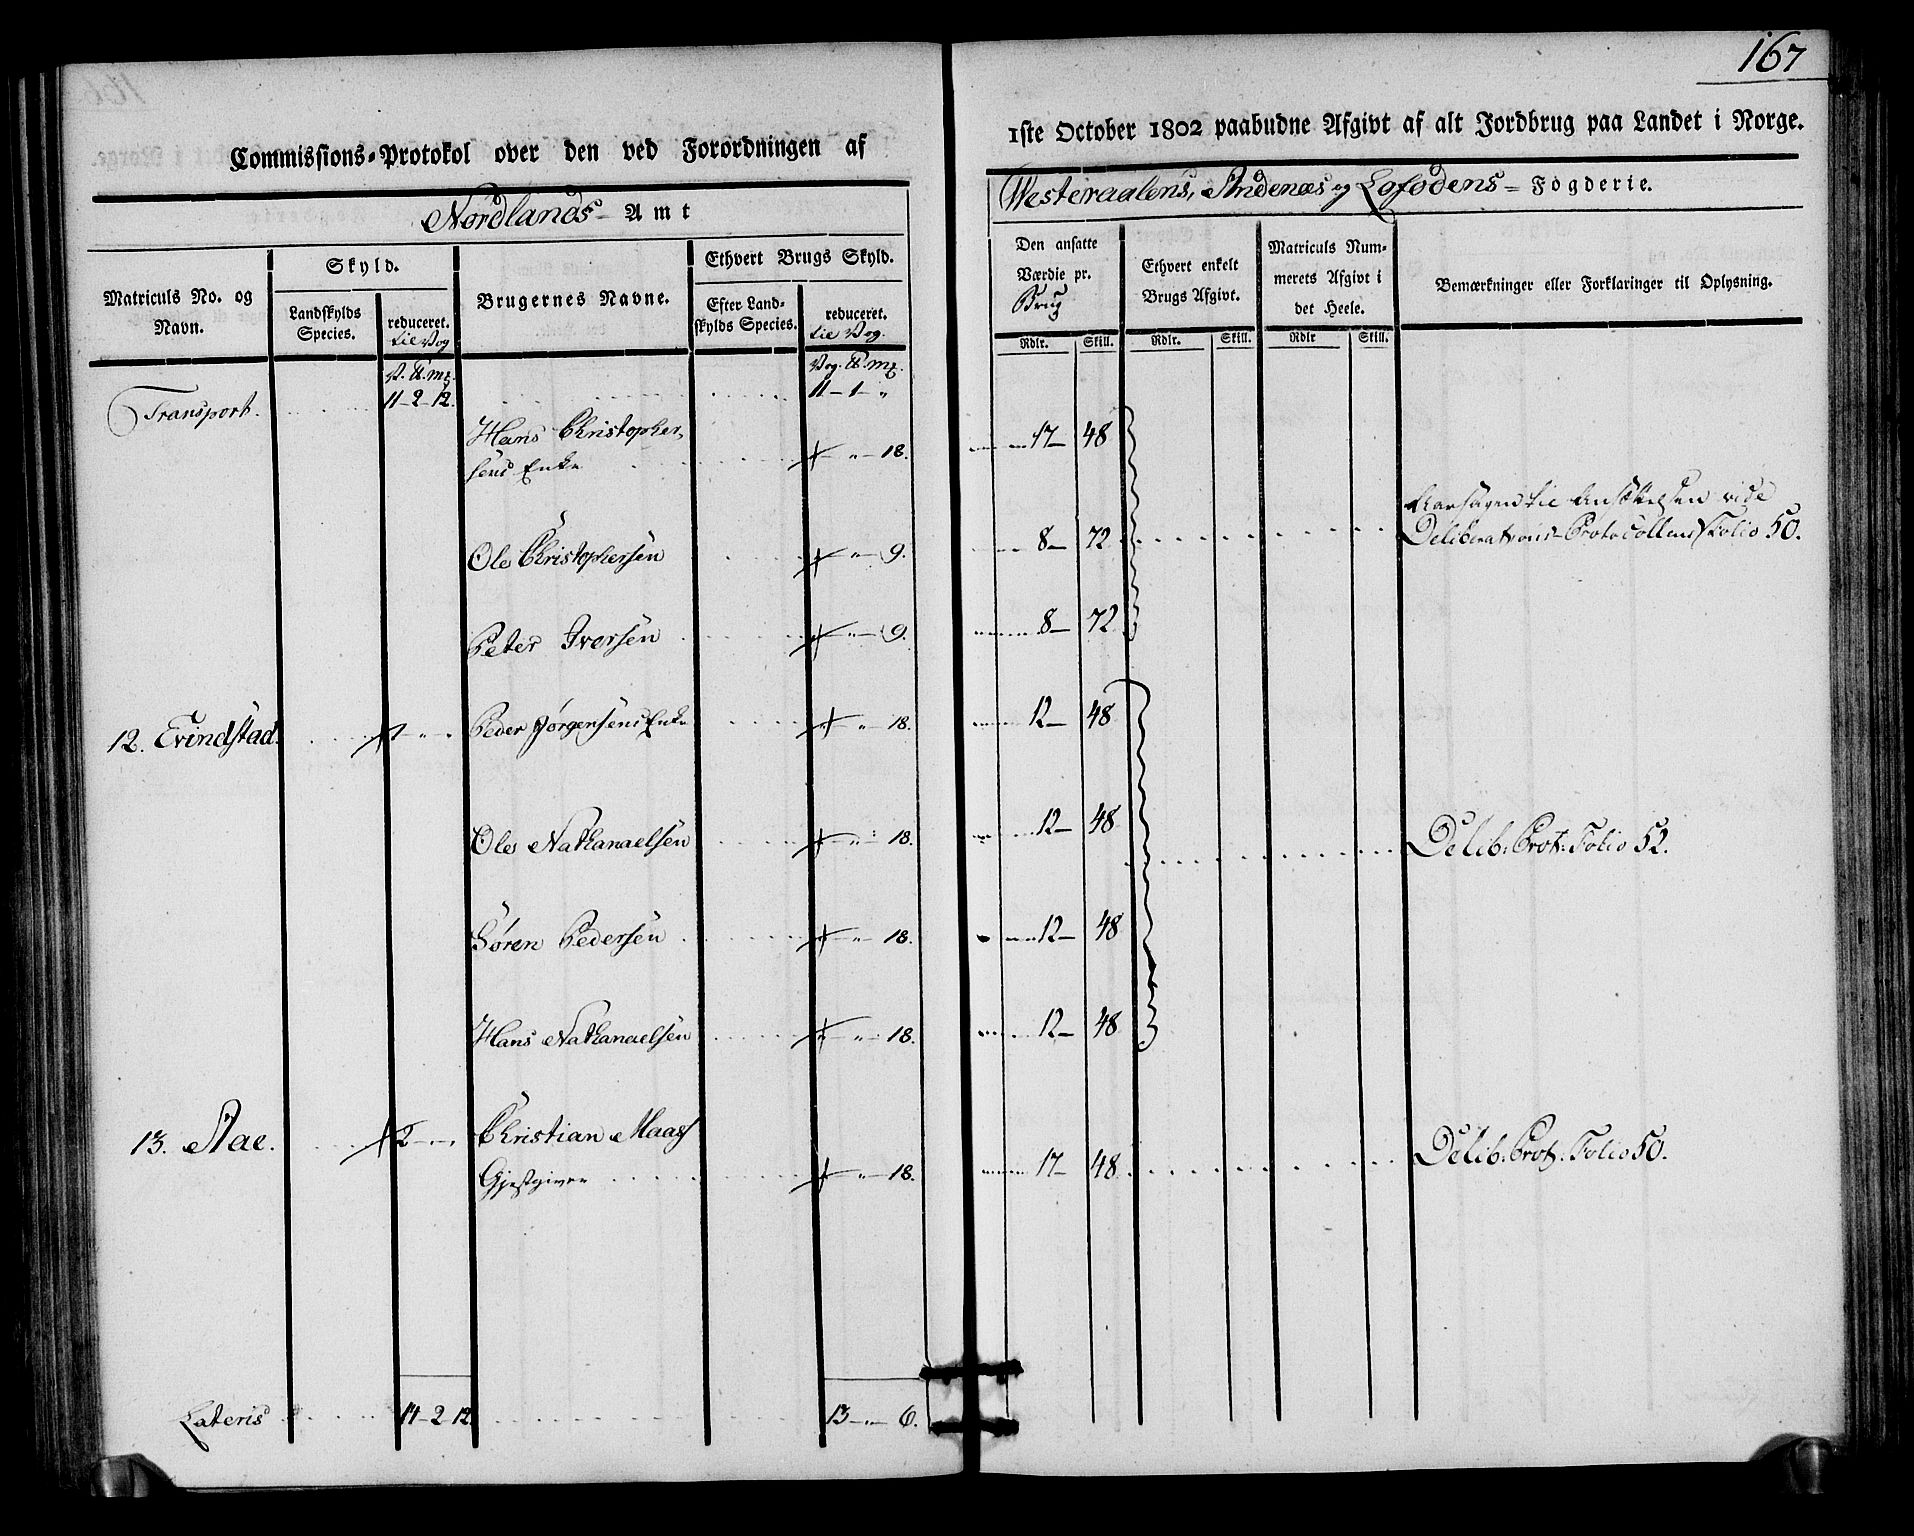 167
Commissions-Protokol over den ved Forordningen af
1ste October 1802 paabudne Afgivt af alt Jordbrug paa Landet i Norge.
Nordlands Amt
Westeraalens, Andenæs og Lofodens Fogderie.
Matriculs No. og Navn.
Skyld.
Landskylds Species.
reduceret. til Vog
Brugernes Navne.
Ethvert Brugs Skyld.
Efter Landskylds Species.
reduceret. til Vog.
Den ansatte Værdie pr. Brug
Ethvert enkelt Brugs Afgivt.
Matriculs Nummerets Afgivt i det Heele.
Bemærkninger eller Forklaringer til Oplysning.
Rdlr. Skill. Rdlr. Skill. Rdlr Skill.
V. ℔. m͠k. Vog. ℔. m͠k.
Transport. 11-2-12. 11-1-"
Hans Christopher-
sens Enke - " - 18. 17- 48
Aarsagen til Ansættelsen vide
Ole Christophersen - " - 9. 8- 72 Deliberations-Protocollens Folio 50.
Peter Iversen - " - 9. 8- 72
12. Evindstad. 1 - " - " Peder Jørgensens Enke - " 18. 12- 48
Ole Nathanaelsen - " - 18. 12- 48 Delib: Prot: Folio 52.
Søren Pedersen - " - 18. 12- 48
Hans Nathanaelsen - " - 18. 12- 48
13. 2 - " - " Christian Maas
Gjestgiver - " - 18. 17- 48 Delib: Prot: Folio 50.
Lateris 14-2 12 13-"-6.